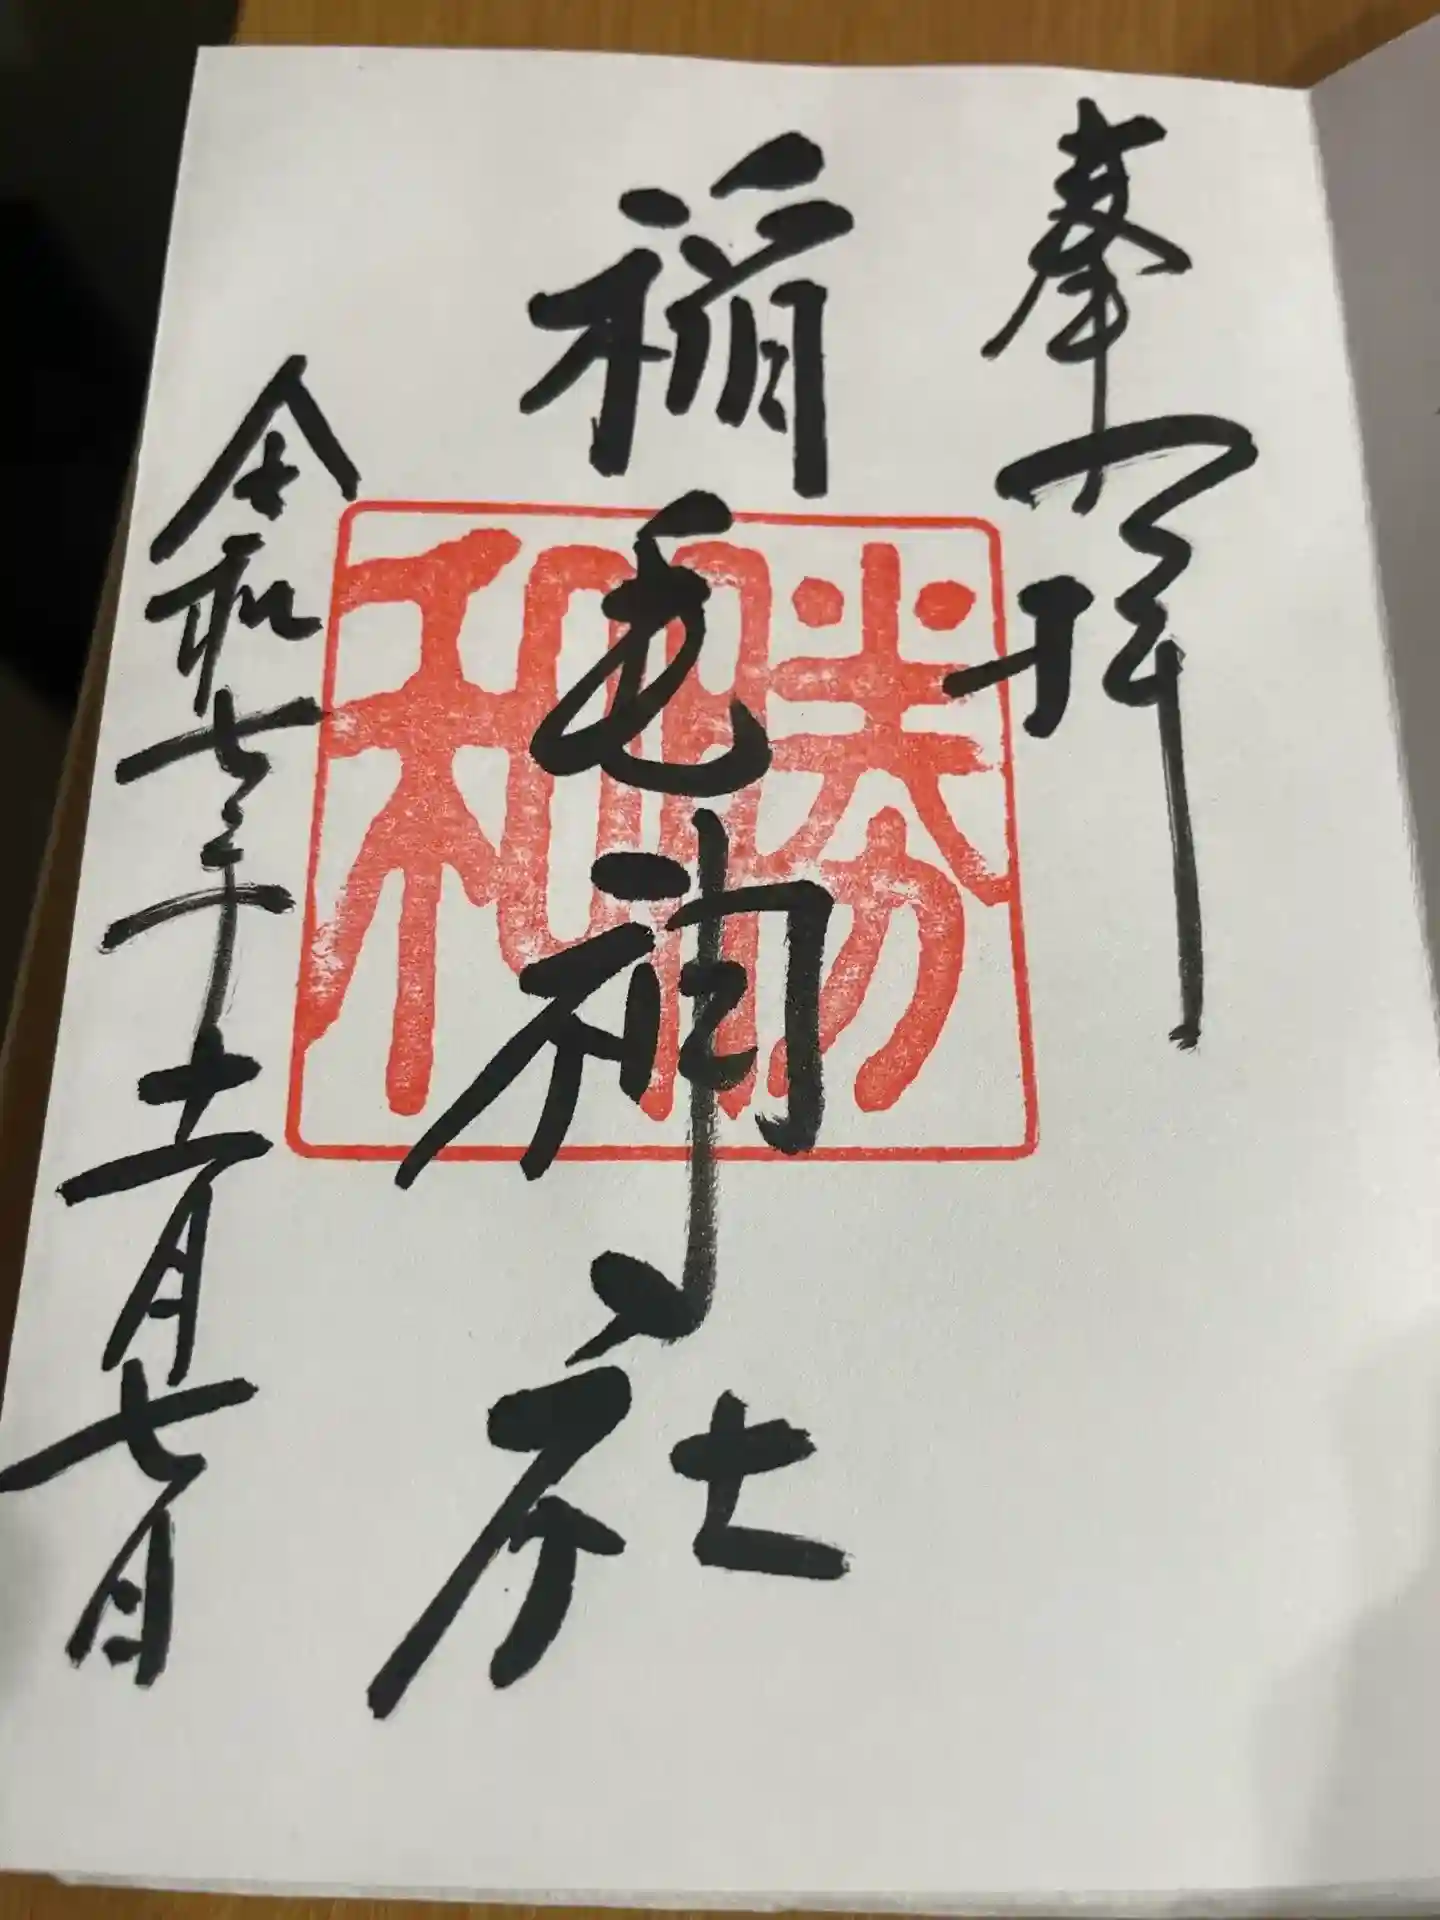 奉拝
稲毛神社
勝和
令和七年十一月七日